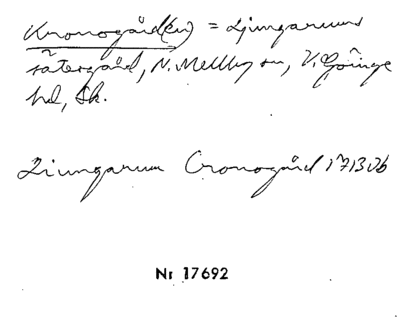 Kronogård(en) = Ljungarums
sätergård, N. Mellby sn, V. Göinge
hd, Sk.
Liungarum Cronogård 1713 Db
Nr 17692